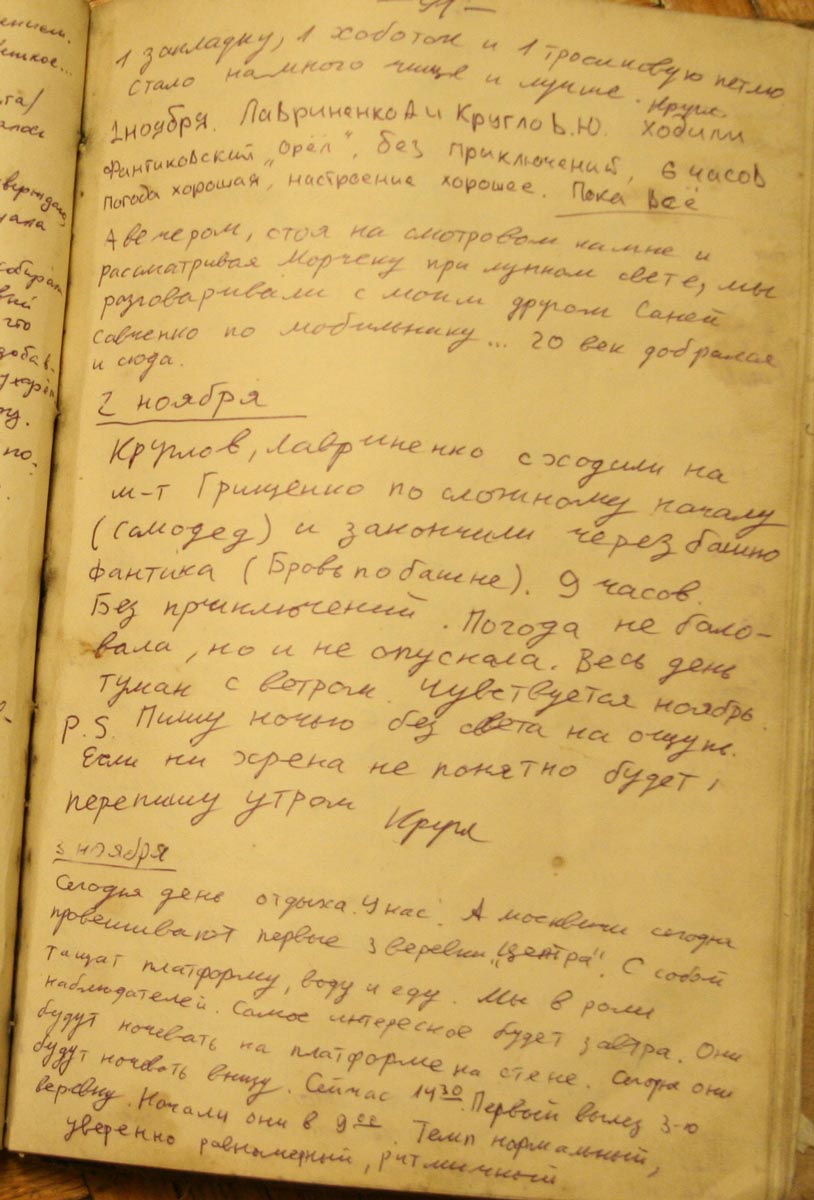 1 закладку, 1 хоботок и 1 тросиковую петлю
Стало намного чище и лучше. Кругл.
1 ноября. Лавриненко А и Круглов.Ю. ходили
Фантиковский „Орёл", без приключений, 6 часов
Погода хорошая, настроение хорошее. Пока всё
А вечером, стоя на смотровом камне и
рассматривая Морчеку при лунном свете, мы
разговаривали с моим другом Саней
Савченко по мобильнику... 20 век добрался
и сюда.
2 ноября
Круглов, Лавриненко сходили на
м-т Грищенко по сложному началу
(самодед) и закончили через башню
фантика (Бровь по башне). 9 часов.
Без приключений. Погода не бало-
вала, но и не опускала. Весь день
туман с ветром. Чувствуется ноябрь.
P.S. Пишу ночью без света на ощупь.
Если ни хрена не понятно будет,
перепишу утром Кругл
3 ноября
Сегодня день отдыха. У нас. А москвичи сегодня
провешивают первые 3 веревки „Центра". С собой
тащат платформу, воду и еду. Мы в роли
наблюдателей. Самое интересное будет завтра. Они
будут ночевать на платформе на стене. Сегодня они
будут ночевать внизу. Сейчас 14 30. Первый вылез 3-ю
веревку. Начали они в 9 00. Темп нормальный,
уверенно равномерный, ритмичный